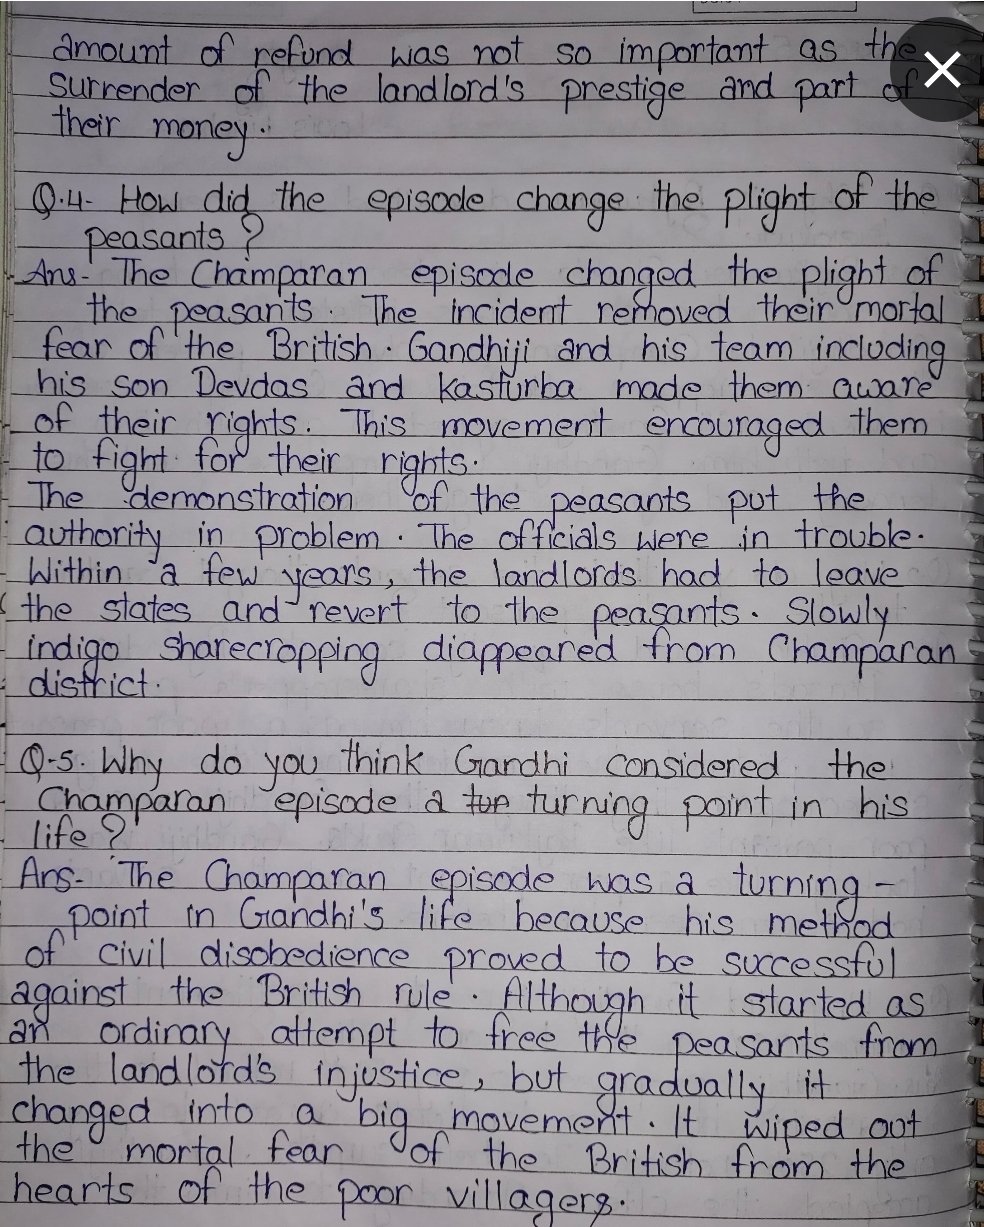 amount of refund was not so important as the
surrender of the landlord's prestige and part of
their money.
Q.4- How did the episode change the plight of the
peasants ?
Ans- The Champaran episode changed the plight of
the peasants. The incident removed their mortal
fear of the British. Gandhiji and his team including
his son Devdas and Kasturba made them aware
of their rights. This movement encouraged them
to fight for their rights.
The demonstration of the peasants put the
authority in problem. The officials were in trouble.
Within a few years, the landlords had to leave
the states and revert to the peasants. Slowly
indigo sharecropping diappeared from Champaran
district.
Q-5. Why do you think Gandhi considered the
Champaran episode a turning point in his
life ?
Ans- The Champaran episode was a turning-
point in Gandhi's life because his method
of civil disobedience proved to be successful
against the British rule. Although it started as
an ordinary attempt to free the peasants from
the landlord's injustice, but gradually it
changed into a big movement. It wiped out
the mortal fear of the British from the
hearts of the poor villagers.